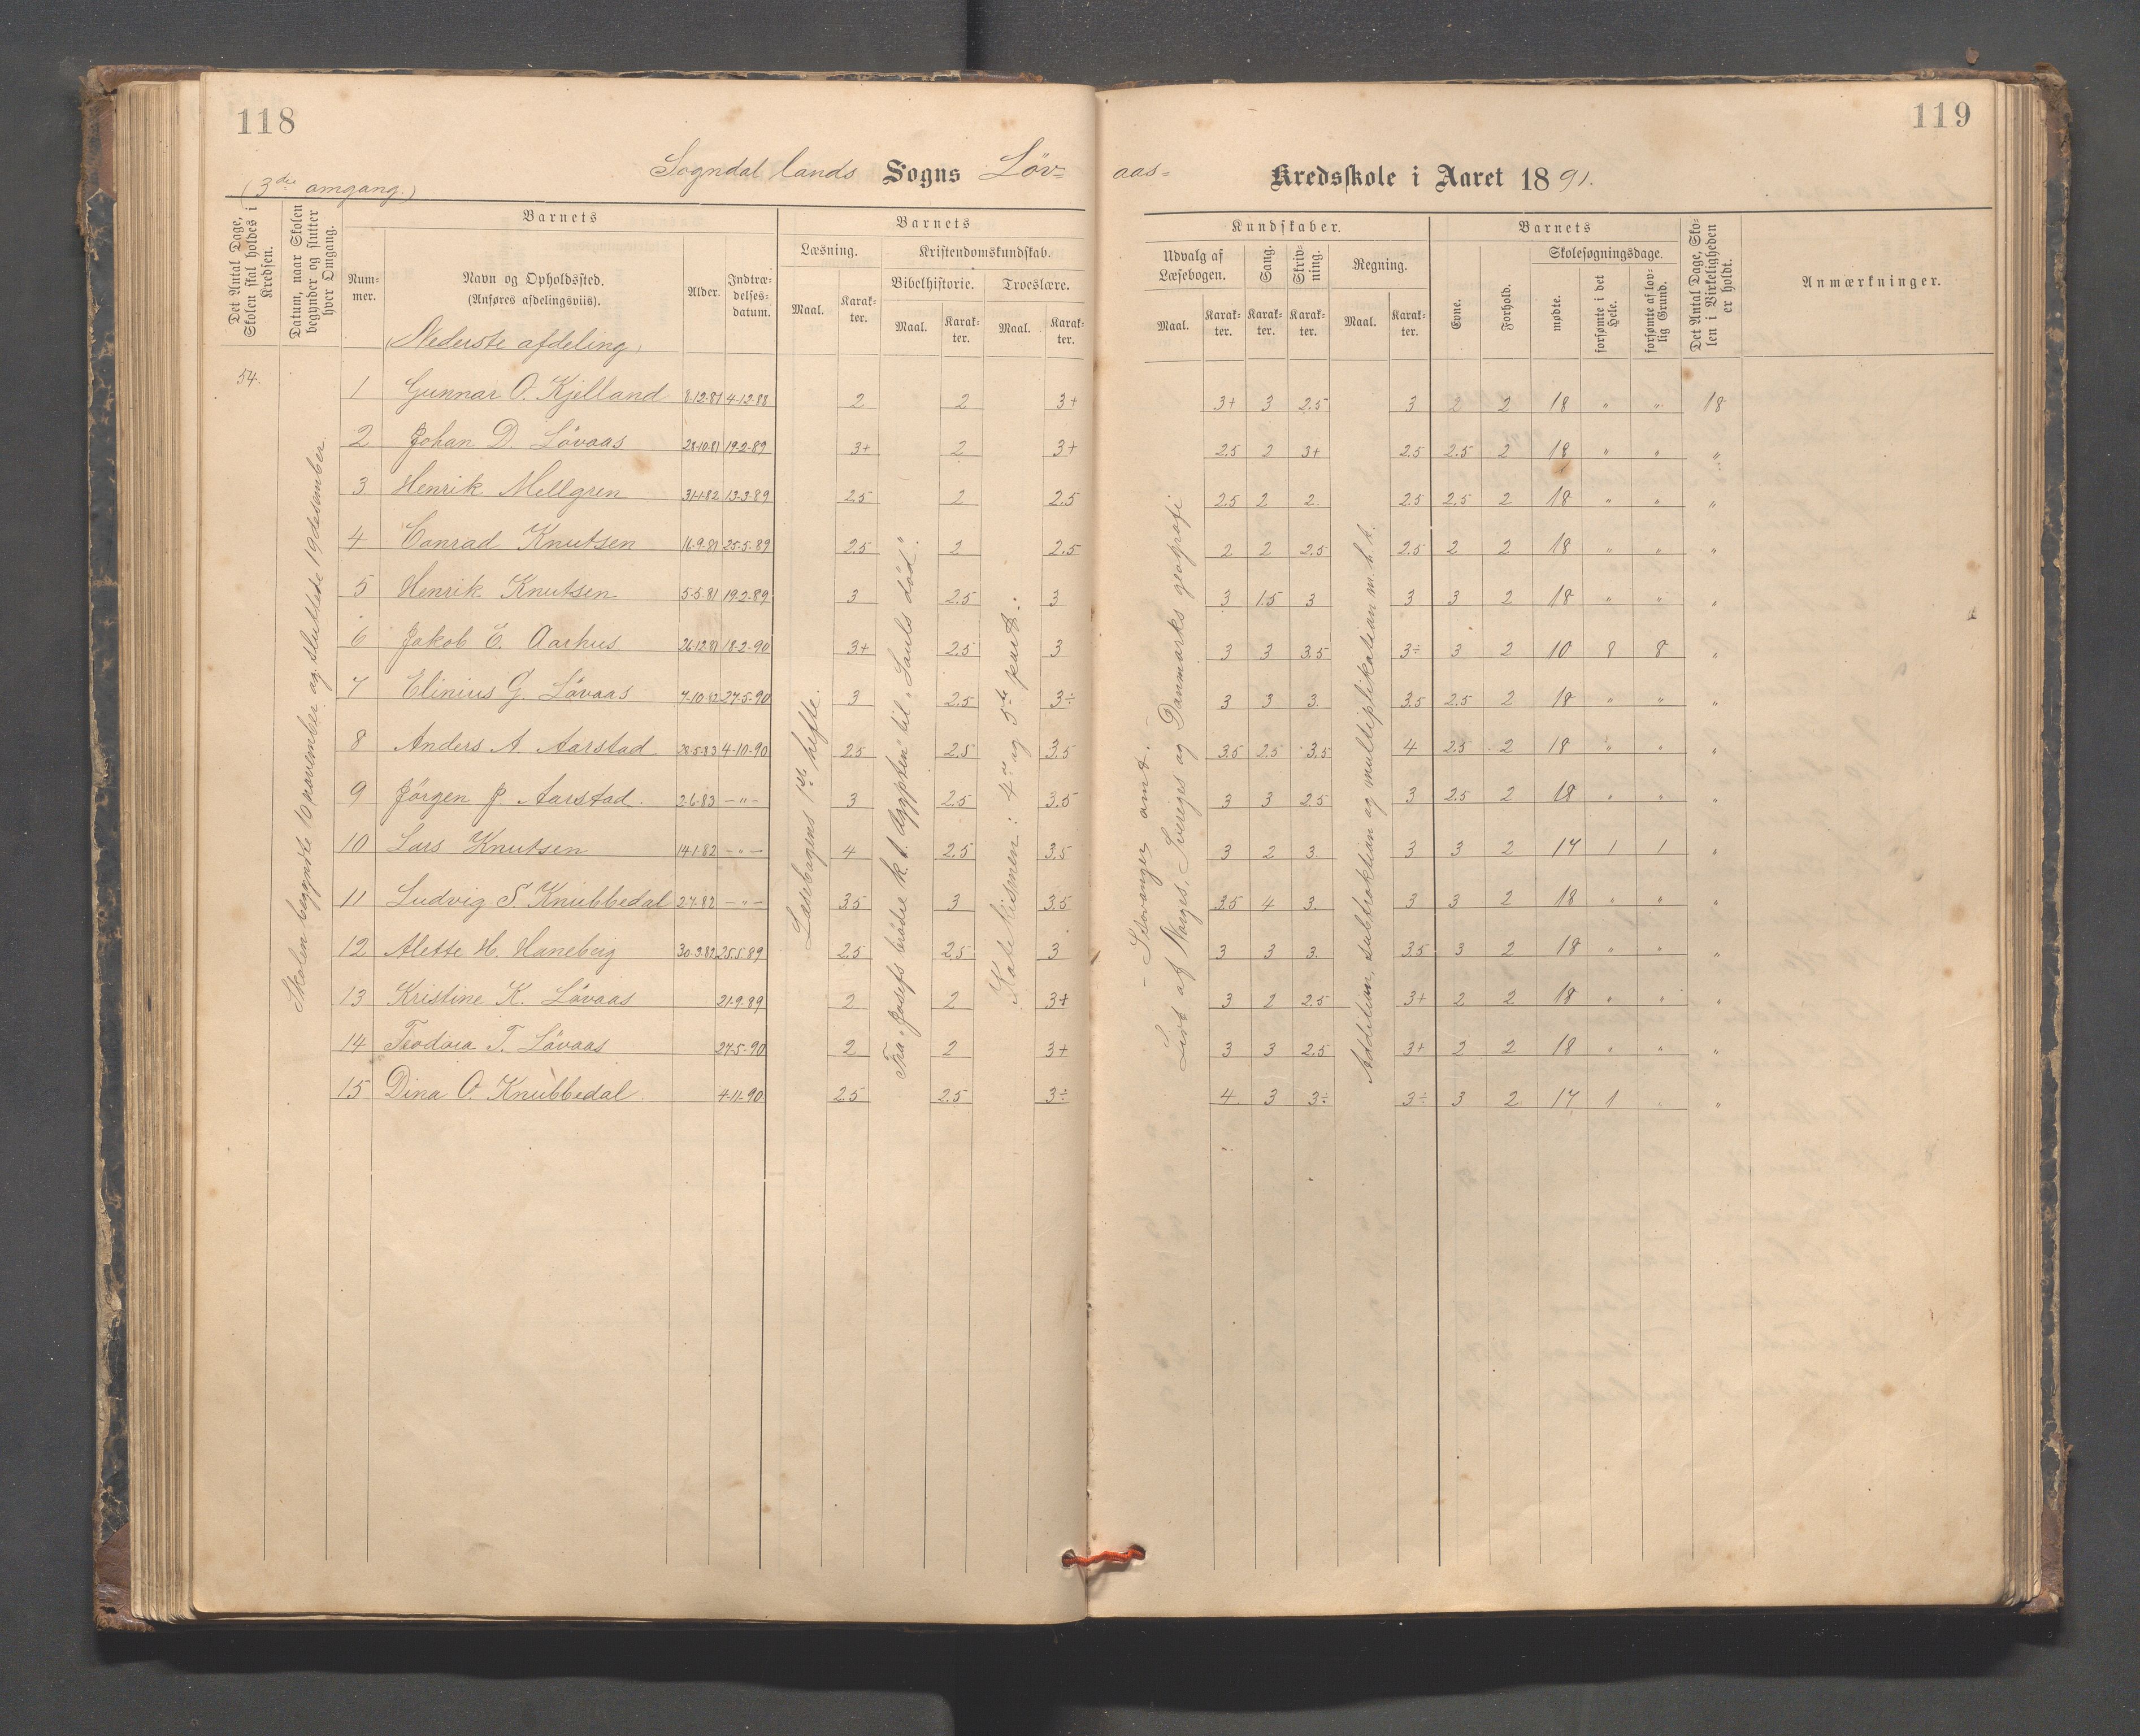 118
119
(3die omgang.)
Sogndal lands Sogns Löv-
aas- Kredsskole i Aaret 1891.
Det Antal Dage, Skolen skal holdes i Kredsen.
Datum, naar Skolen begynder og slutter hver Omgang.
Barnets
Nummer.
Navn og Opholdssted.
(Anføres afdelingsviis).
Alder.
Indtrædelsesdatum.
Barnets
Læsning.
Maal.
Karakter.
Kristendomskundskab.
Bibelhistorie.
Maal.
Karakter.
Troeslære.
Maal.
Karakter.
Kundskaber.
Udvalg af Læsebogen.
Maal.
Karakter.
Sang.
Karakter.
Skrivning.
Karakter.
Regning.
Maal.
Karakter.
Barnets
Evne.
Forhold.
Skolesøgningsdage.
mødte.
forsømte i det Hele.
forsømte af lovlig Grund.
Det Antal Dage, Skolen i Virkeligheden er holdt.
Anmærkninger.
(Nederste afdeling)
54.
Skolen begyndte 16 november og sluttede 19 desember.
Læsebogens 1ste hefte.
Fra "Josefs brødre k. t. Ægypten" til "Sauls död".
Katekismen: 4de og 5te part.
- Stavanger amt. -
Livt af Norges, Sveriges og Danmarks geografi
Addition, subtraktion og multiplikation m. h. t.
1 Gunnar O. Kjelland 8-12-81 4-12-88 2 2 3+ 3+ 3 2.5 3 2 2 18 " " 18
2 Johan D. Lövaas 28-10-81 19-2-89 3+ 2 3+ 2.5 2 3+ 2.5 2.5 2 18 " " "
3 Henrik Mellgren 31-1-82 13-3-89 2.5 2 2.5 2.5 2 2. 2.5 2.5 2 18 " " "
4 Conrad Knutsen 16-9-81 25-5-89 2.5 2 2.5 2 2 2.5 2.5 2 2 18 " " "
5 Henrik Knutsen 5-5-81 19-2-89 3 2.5 3 3 1.5 3 3 3 2 18 " " "
6 Jakob E. Aarhus 26-12-81 18-2-90 3+ 2.5 3 3 3 3.5 3÷ 3 2 10 8 8 "
7 Elinius G. Lövaas 7-10-82 27-5-90 3 2.5 3÷ 3 3 3. 3.5 2.5 2 18 " " "
8 Anders A. Aarstad 28-5-83 4-10-90 2.5 2.5 3.5 3.5 2.5 3.5 4 2.5 2 18 " " "
9 Jörgen J. Aarstad. 2-6-83 -"- 3 2.5 3.5 3 3 2.5 3 2.5 2 18 " " "
10 Lars Knutsen 14-1-82 -"- 4 2.5 3.5 3 2 3. 3 3 2 17 1 1 "
11 Ludvig S. Knubbedal 2-7-82 -"- 3.5 3 3.5 3.5 4 3. 3 3 2 18 " " "
12 Alette H. Haneberg 30-3-82 25-5-89 2.5 2.5 3 3 3 3. 3.5 3 2 18 " " "
13 Kristine K. Lövaas 21-9-89 2 2 3+ 3 2 2.5 3+ 2 2 18 " " "
14 Teodora T. Lövaas 27-5-90 2 2 3+ 3 3 2.5 3+ 2 2 18 " " "
15 Dina O. Knubbedal 4-11-90 2.5 2.5 3÷ 4 3 3÷ 3÷ 3 2 17 1 " "